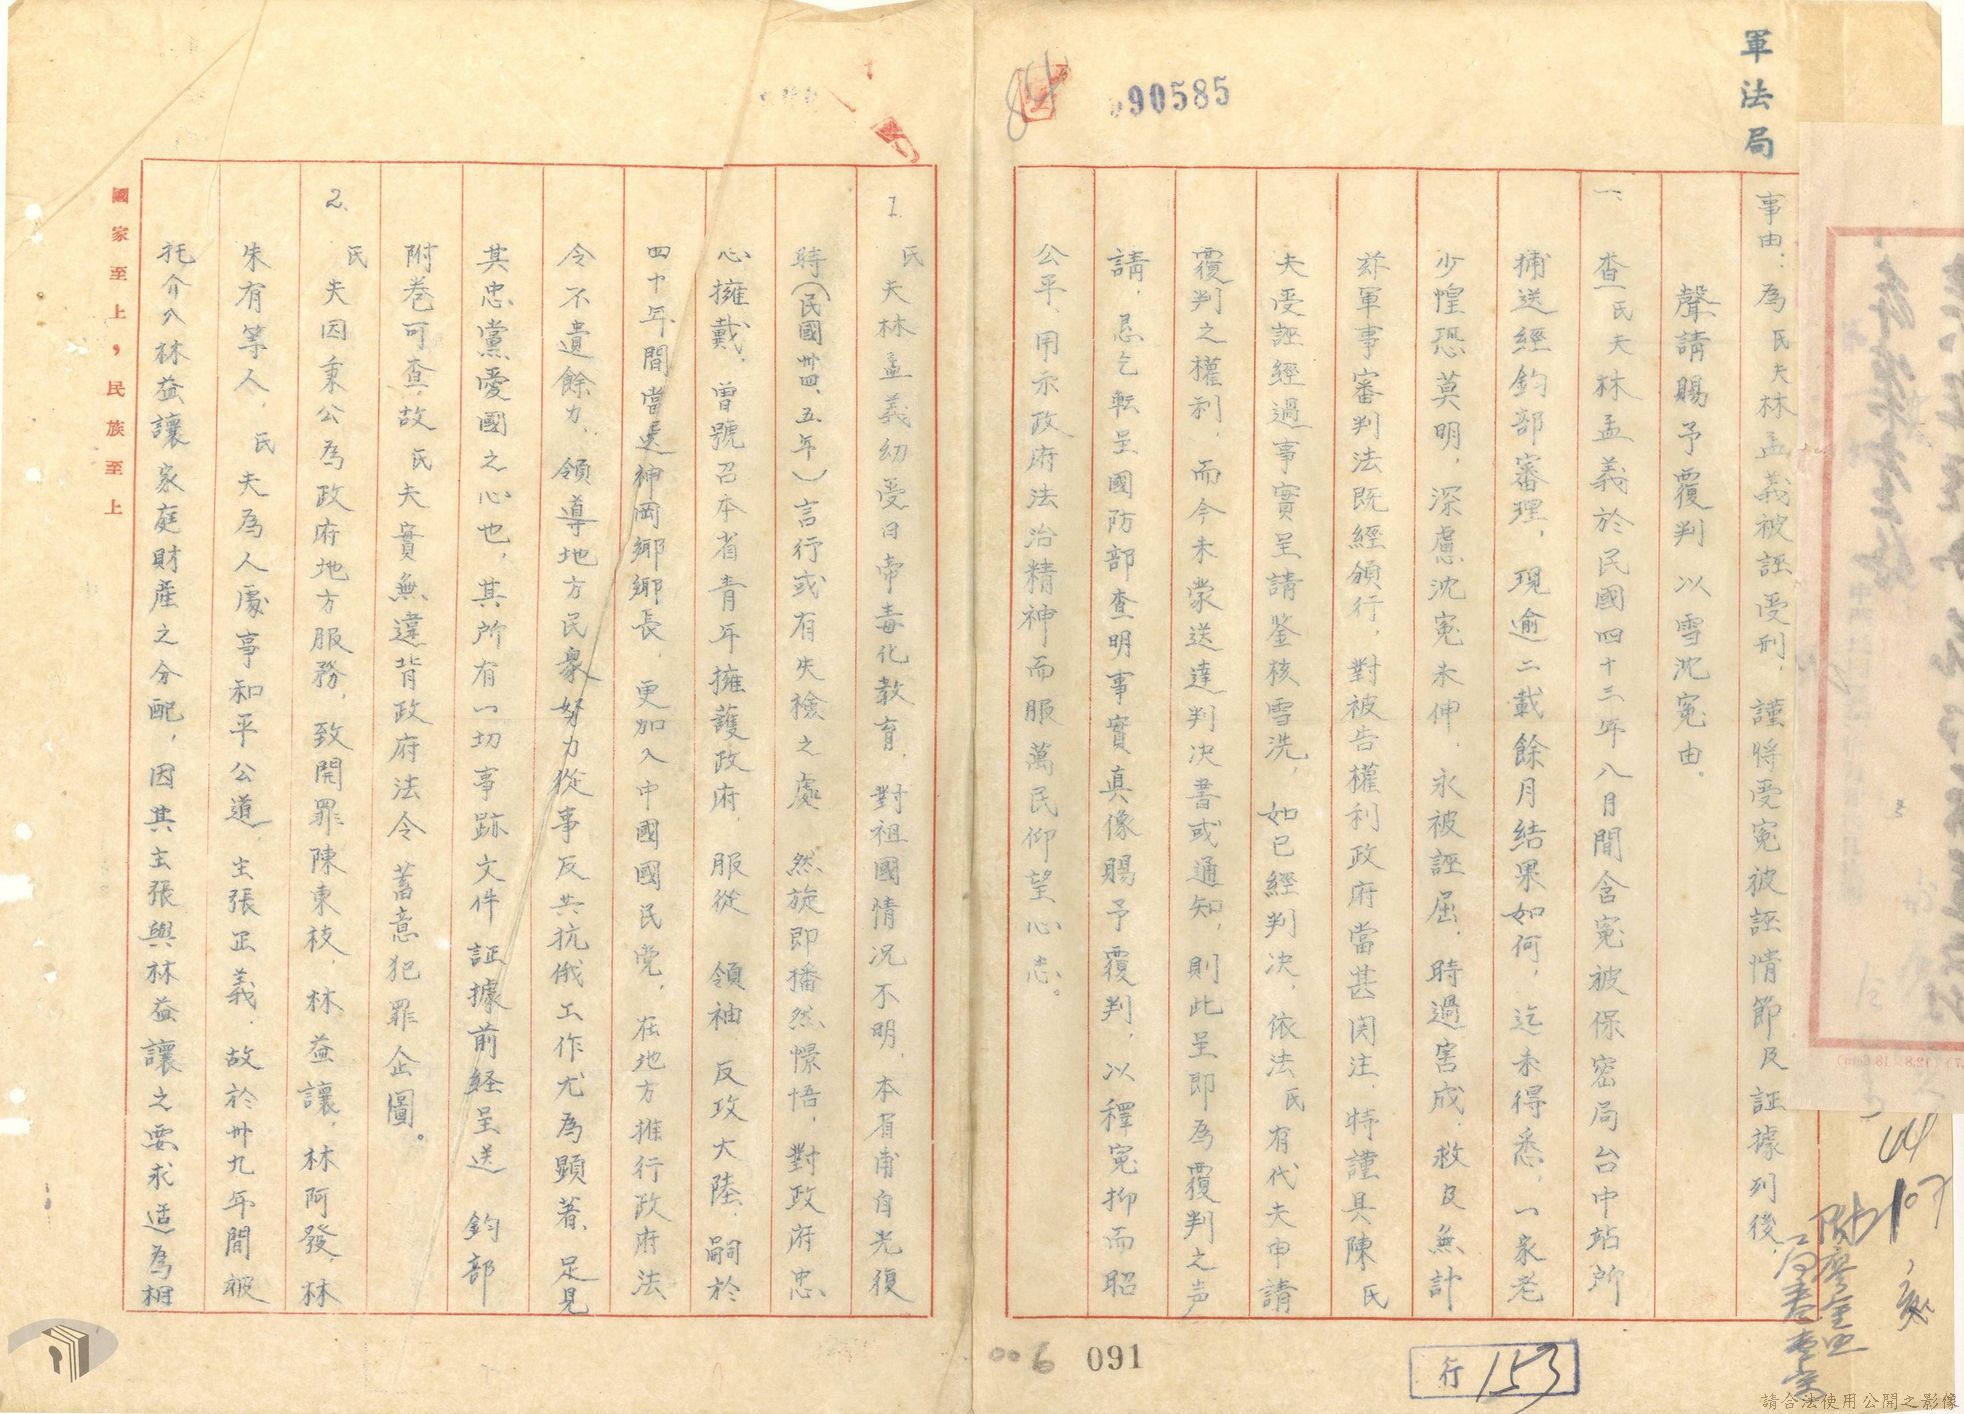 軍法局
90585
事由：為民夫林孟義被誣受刑，謹將受冤被誣情節及証據列後，
聲請賜予覆判以雪沈冤由。
一、查民夫林孟義於民國四十三年八月間含冤被保密局台中站所
捕送經鈞部審理，現逾二載餘月結果如何，迄未得悉，一家老
少惶恐莫明，深慮沈冤未伸，永被誣屈，時過害成，救及無計
茲軍事審判法既經頒行，對被告權利政府當甚関注，特謹具陳民
夫受誣經過事實呈請鉴核雪洗，如已經判决，依法民有代夫申請
覆判之權利，而今未蒙送達判决書或通知，則此呈即為覆判之声
請，恳乞転呈國防部查明事實真像賜予覆判，以釋冤抑而昭
公平，用示政府法治精神而服萬民仰望心志。
1. 民夫林孟義幼受日帝毒化教育，對祖國情况不明，本省甫自光復
時（民國卅四、五年）言行或有失檢之處，然旋即播然憬悟，對政府忠
心擁戴，曾號召本省青年擁護政府，服從領袖，反攻大陸，嗣於
四十年間當選神岡鄉鄉長，更加入中國國民党，在地方推行政府法
令不遺餘力，領導地方民衆努力從事反共抗俄工作尤為顕著，足見
其忠黨愛國之心也，其所有一切事跡文件証據前経呈送鈞部
附卷可查，故民夫實無違背政府法令蓄意犯罪企圖。
2. 民夫因秉公為政府地方服務，致開罪陳東枝，林益讓，林阿發，林
朱有等人，民夫為人處事和平公道，主張正義，故於卅九年間被
托介入林益讓家庭財產之分配，因其主張與林益讓之要求適為相
國家至上，民族至上
006
091
行 153
107
請合法使用公開之影像